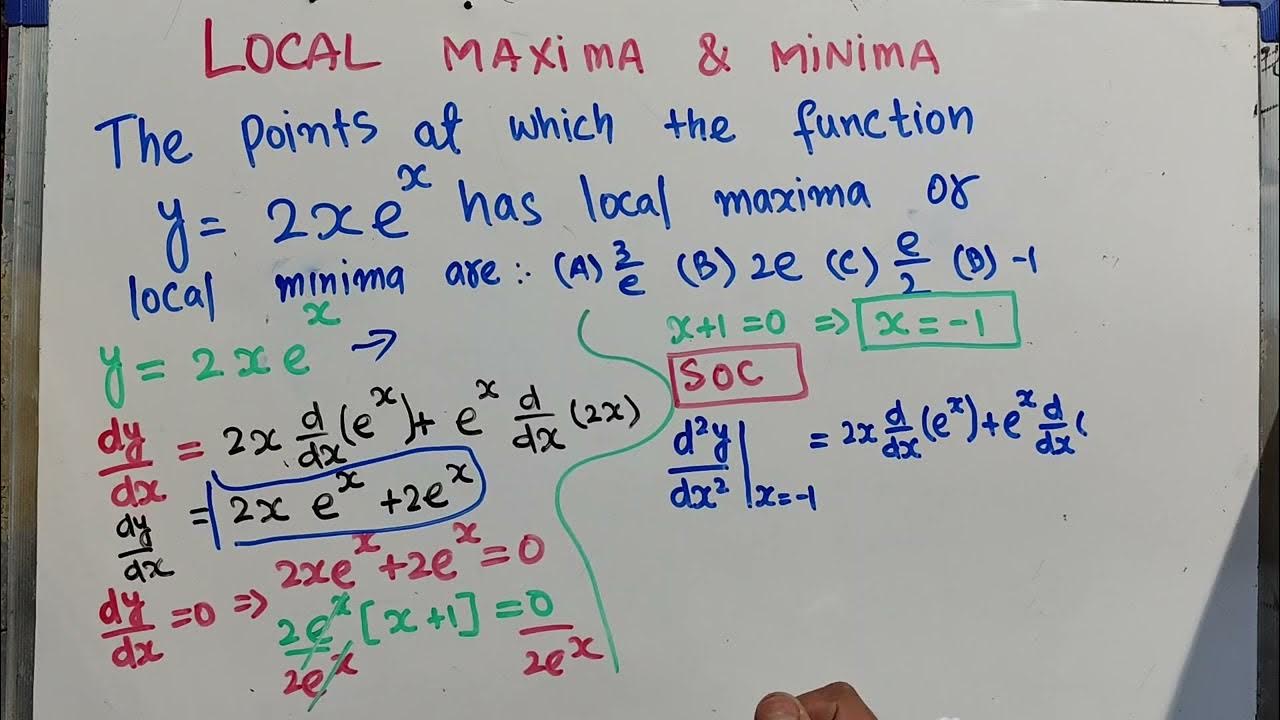 LOCAL MAXIMA & MINIMA
The points at which the function
y = 2xe^x has local maxima or
local minima are :- (A) 3/e (B) 2e (C) e/2 (D) -1
y = 2xe^x →
dy/dx = 2x d/dx (e^x) + e^x d/dx (2x)
dy/dx = 2x e^x + 2e^x
2xe^x + 2e^x = 0
dy/dx = 0 ⇒ 2e^x/2e^x [x+1] = 0/2e^x
x+1 = 0 ⇒ x = -1
SOC
d²y/dx² |x=-1 = 2x d/dx (e^x) + e^x d/dx (